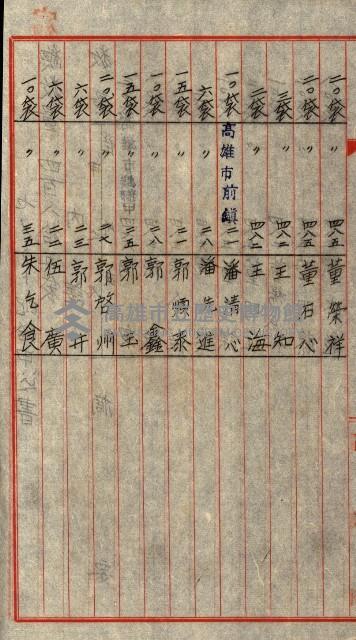 二〇袋 〃 四八五 董榮祥
二〇袋 〃 四八五 董石心
三袋 〃 四八二 王知
二袋 〃 四八二 王海
一〇袋 高雄市前鎮 二一 潘清心
六袋 〃 二八 潘進
一五袋 〃 二一 郭順泰
一〇袋 〃 二八 郭鑫
一五袋 〃 二五 郭玉
二〇袋 〃 二七 郭啓州
六袋 〃 二三 郭井
六袋 〃 二二 伍廣
一〇袋 〃 三五 朱乞食
高雄市立歷史博物館